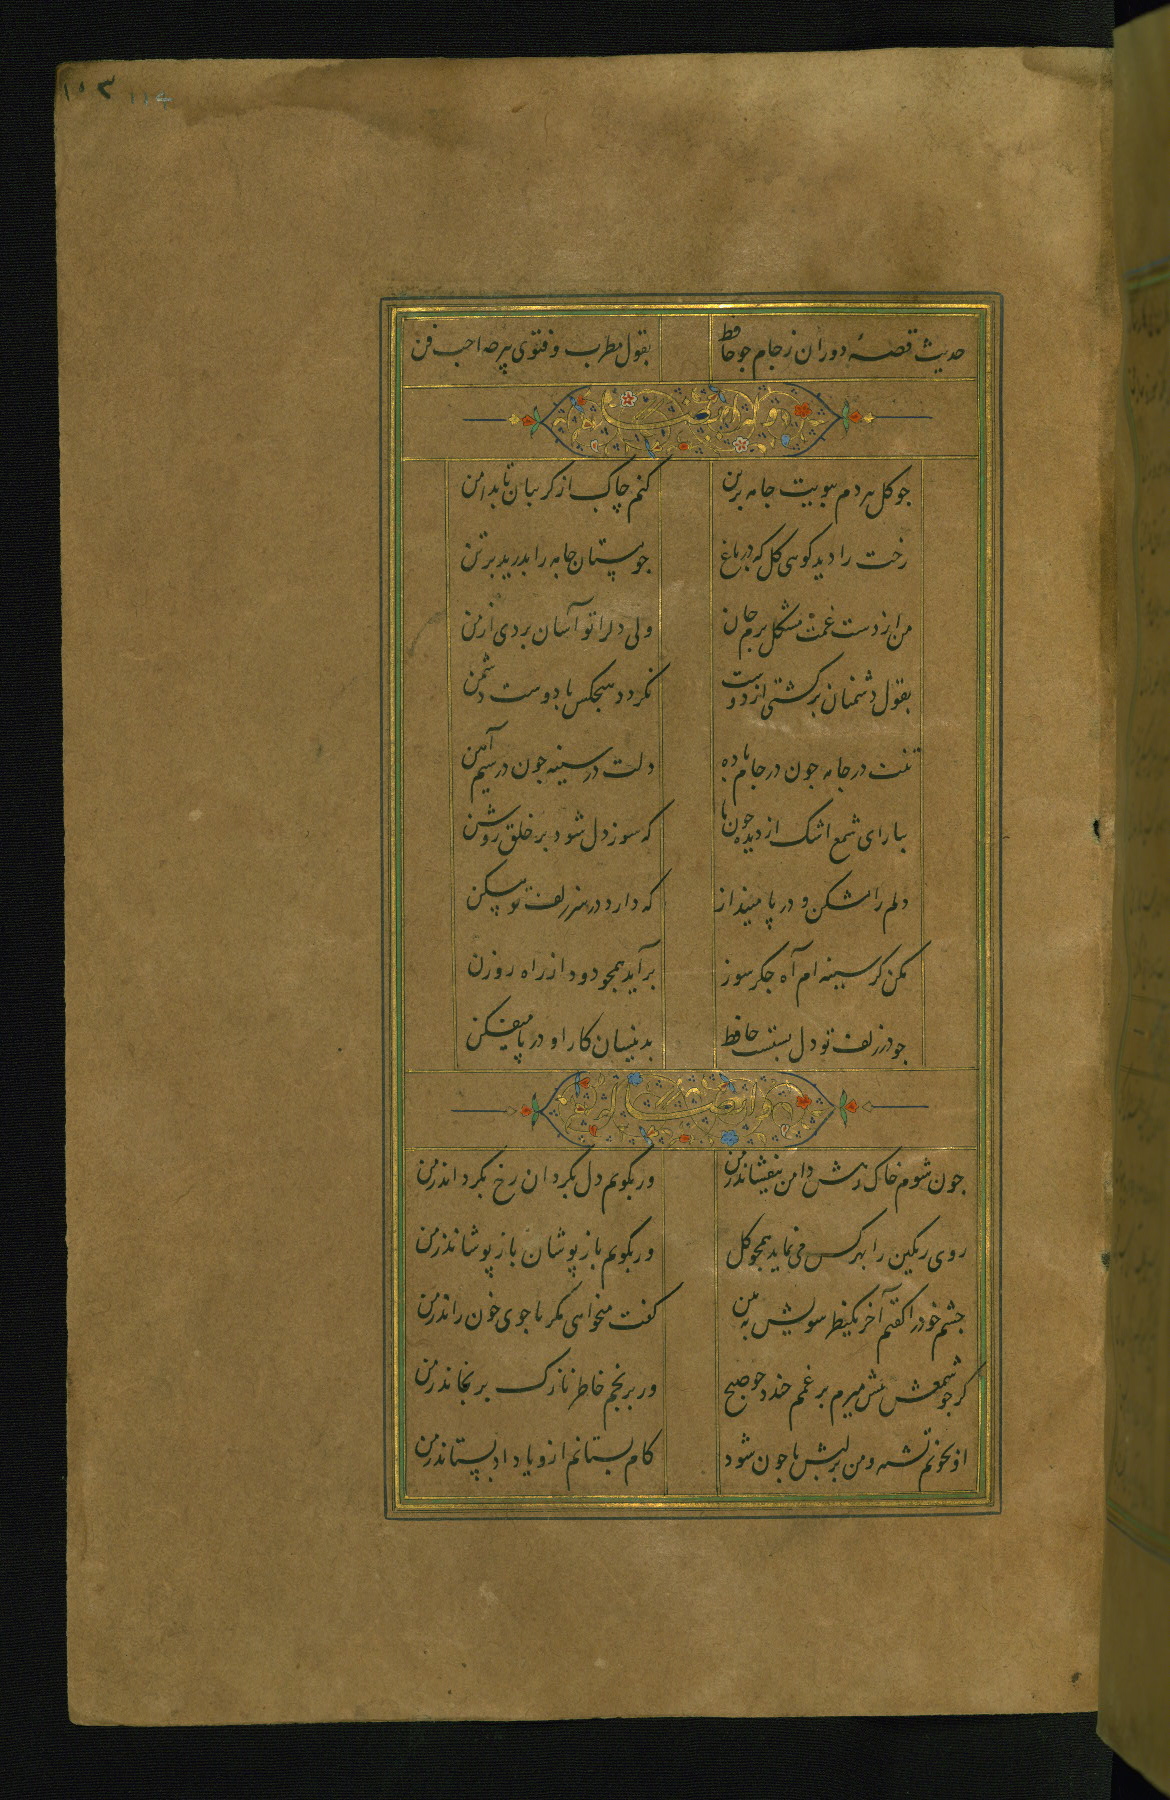 ۱۵۳ ۱۱۴
حدیث قصهٔ دوران ز جام جو حافظ بقول مطرب و فتوی پیر صاحب فن
وله ایضا
جو کل هر دم ببویت جامه بر تن کنم چاک از کریبان تا بدامن
رخت را دید کویی کل که در باغ جو مستان جامه را بدرید بر تن
من از دست غمت مشکل برم جان ولی دلرا تو آسان بردی از من
بقول دشمنان برکشتی از دوست نکردد هیجکس با دوست دشمن
تنت در جامه جون در جام باده دلت در سینه جون در سیم آهن
ببار ای شمع اشک از دیده جون ما که سوز دل شود بر خلق روشن
دلم را مشکن و در پا مینداز که دارد در سر زلف تو مسکن
مکن کز سینه ام آه جکر سوز برآید همجو دود از راه روزن
جو در زلف تو دل بستست حافظ بدینسان کار او در پا میفکن
و ایضا له
جون شوم خاک رهش دامن بیفشاند ز من ور بکویم دل بکردان رخ بکرداند ز من
روی رنکین را بهر کس می نماید همجو کل ور بکویم باز پوشان باز پوشاند ز من
جشم خود را کفتم آخر یکنظر سویش به بین کفت میخواهی مکر تا جوی خون راند ز من
کر جو شمعش پیش میرم بر غمم خندد جو صبح ور برنجم خاطر نازک برنجاند ز من
او بخونم تشنه و من بر لبش تا جون شود کام بستانم ازو یا داد بستاند ز من